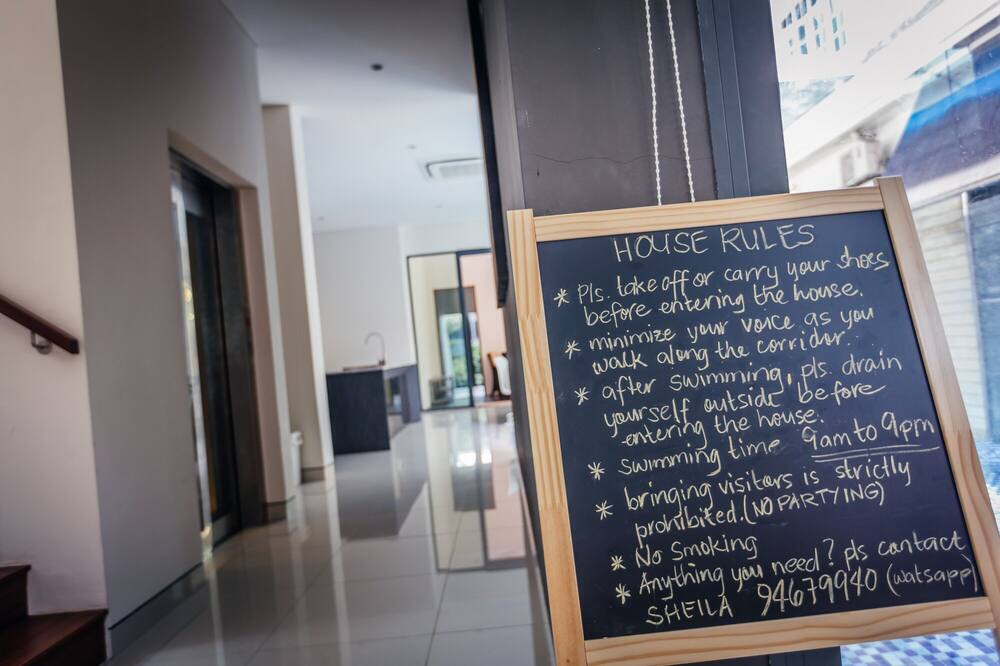 HOUSE RULES
* Pls. take off or carry your shoes
before entering the house.
* minimize your voice as you
walk along the corridor.
* after swimming, pls. drain
yourself outside before
entering the house.
* swimming time 9am to 9pm
* bringing visitors is strictly
prohibited. (NO PARTYING)
* No Smoking
* Anything you need? pls contact
SHEILA 94679940 (watsapp)